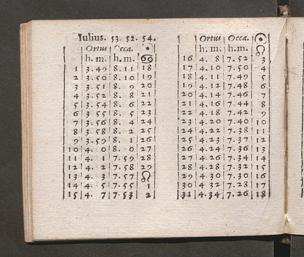 Iulius. 53. 52. 54.
Ortus Occa.
h. m. h. m.
1 3. 49 8. 11 18
2 3. 50 8. 10 19
3 3. 51 8. 9 20
4 3. 52 8. 8 21
5 3. 54 8. 6 22
6 3. 55 8. 5 23
7 3. 56 8. 4 24
8 3. 58 8. 2 25
9 3. 59 8. 1 26
10 4. 0 8. 0 27
11 4. 1 7. 59 28
12 4. 2 7. 58 29
13 4. 3 7. 57
14 4. 5 7. 55 1
15 4. 7 7. 53 2
Ortus Occa.
h. m. h. m.
16 4. 8 7. 52 3
17 4. 10 7. 50 4
18 4. 11 7. 49 5
19 4. 13 7. 47 6
20 4. 14 7. 46 7
21 4. 16 7. 44 8
22 4. 18 7. 42 9
23 4. 20 7. 40 10
24 4. 22 7. 38 11
25 4. 24 7. 36 12
26 4. 26 7. 34 14
27 4. 26 7. 34 14
28 4. 28 7. 32 15
29 4. 30 7. 30 16
30 4. 32 7. 28 17
31 4. 34 7. 26 18